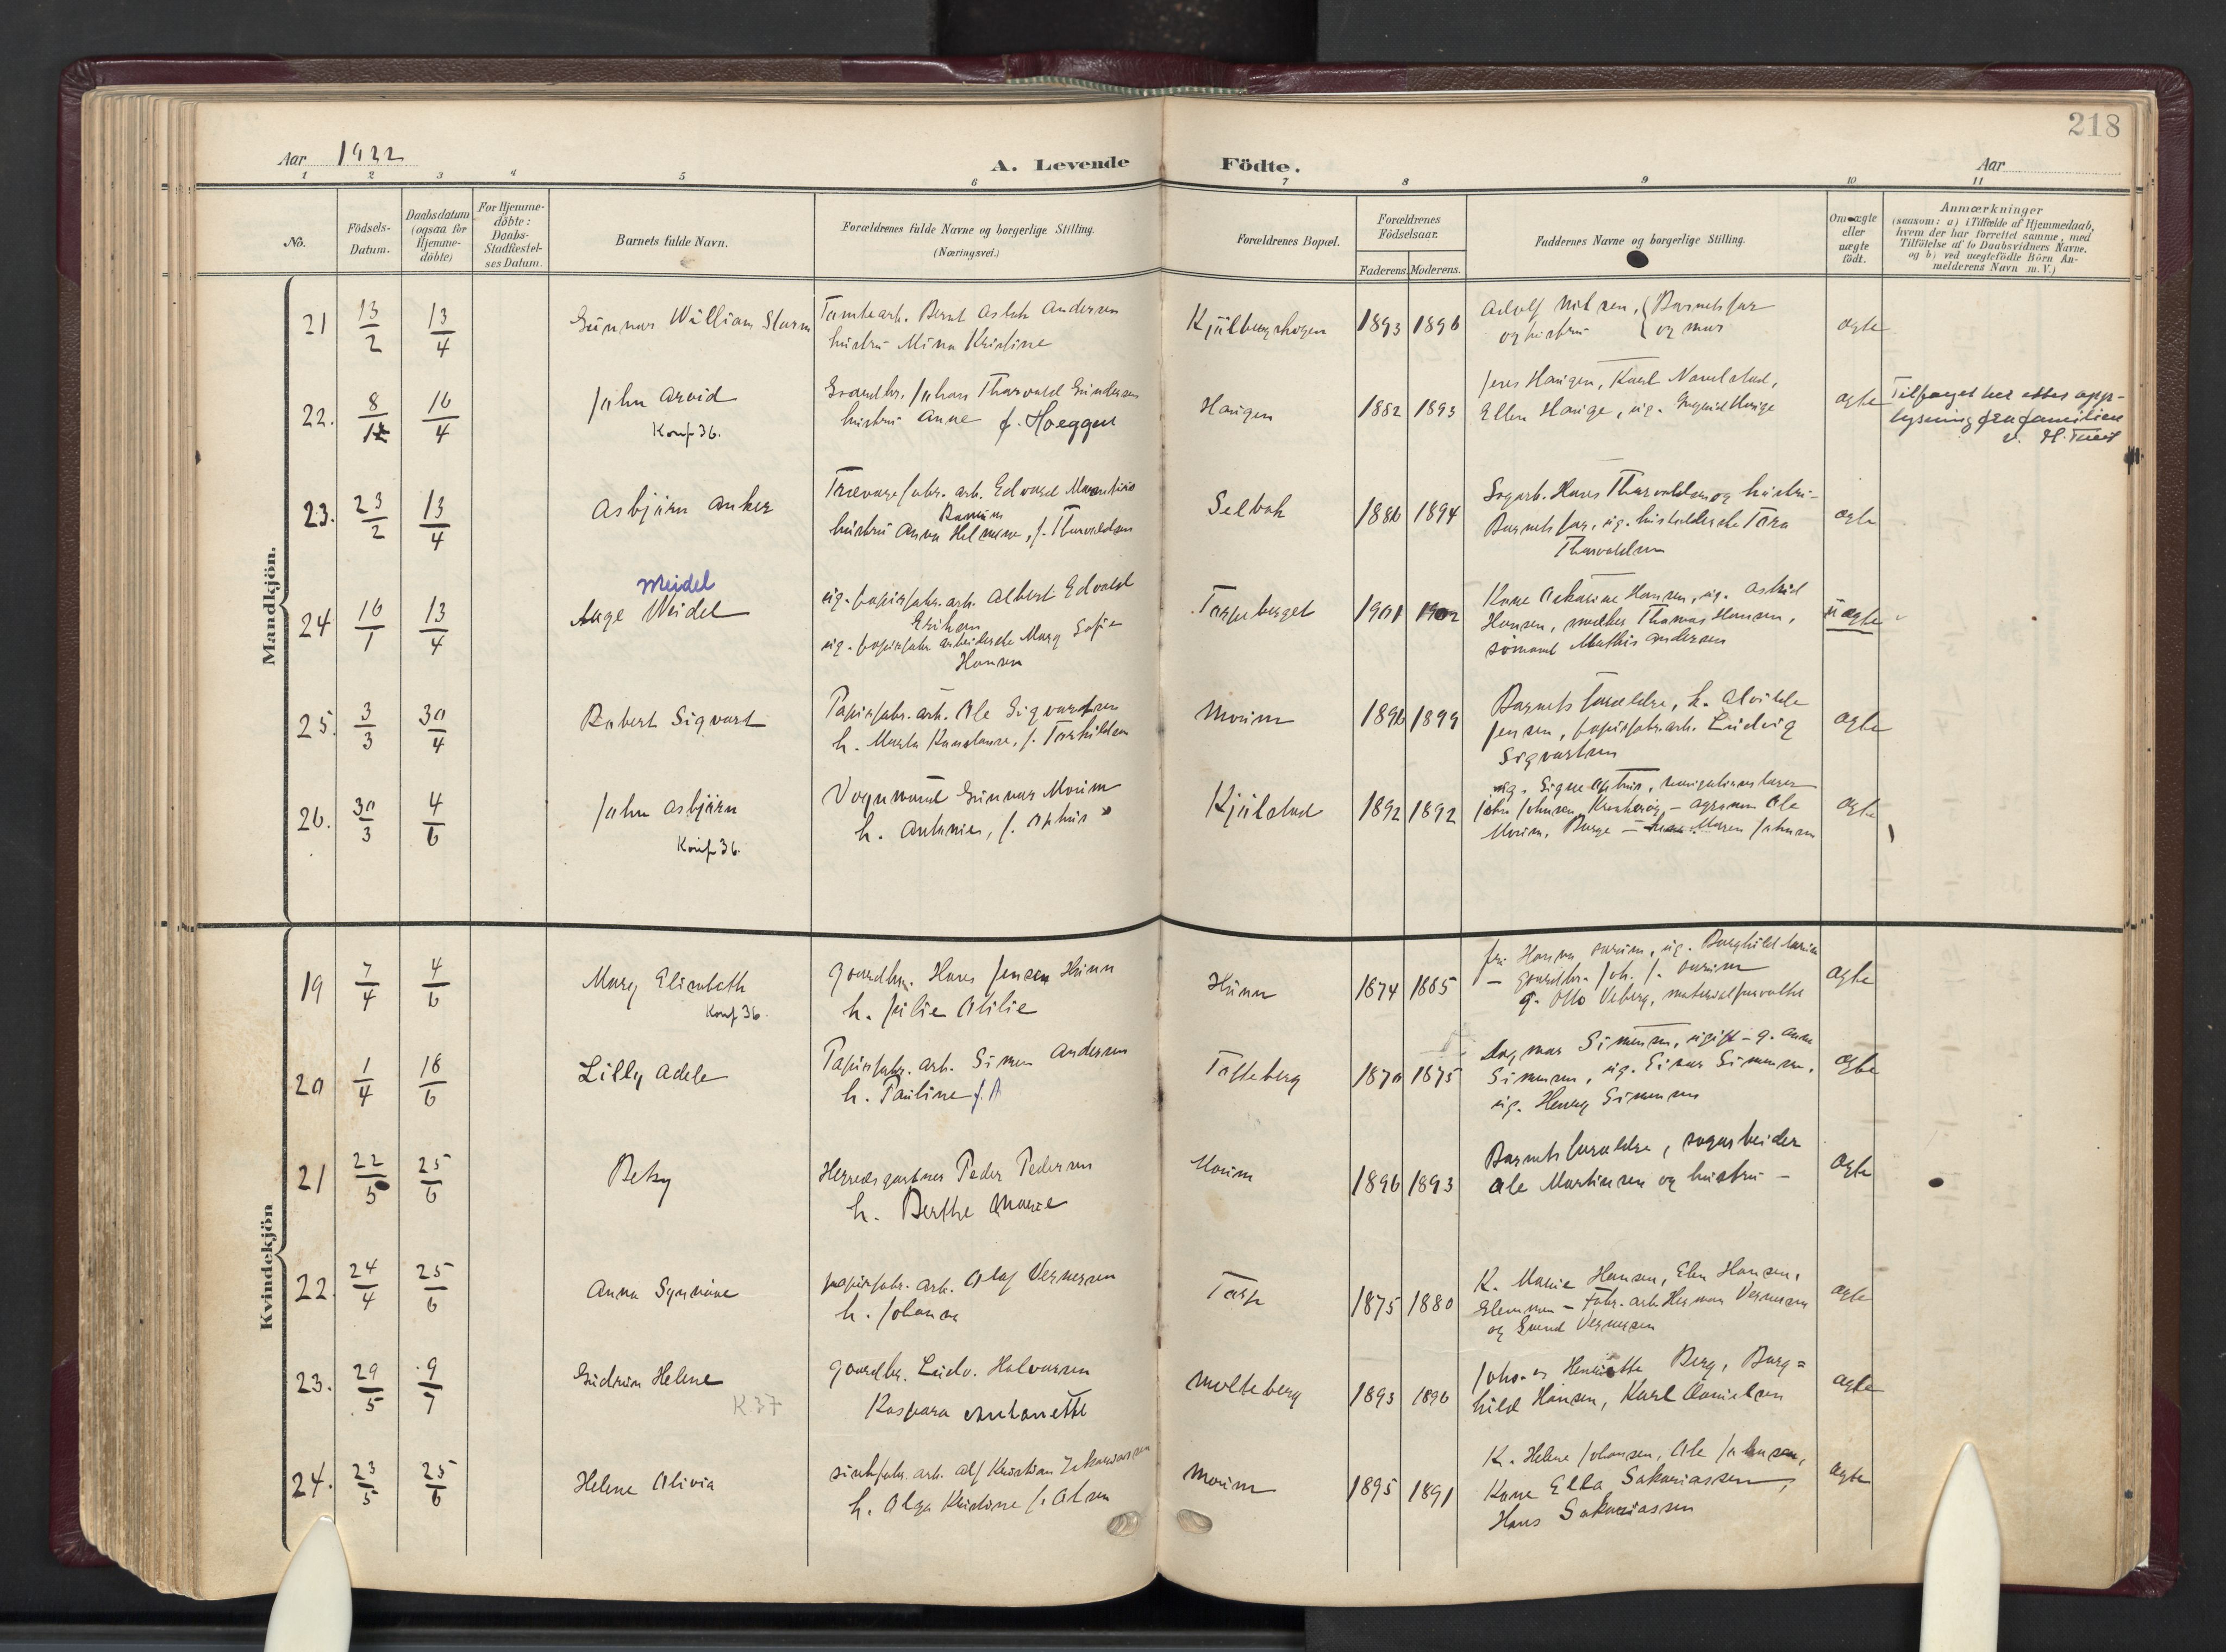 218
Aar 1922
A. Levende Födte.
Aar
1 2 3 4 5 6 7 8 9 10 11
No.
Födsels-
Datum.
Daabsdatum
(ogsaa for
Hjemme-
döbte)
For Hjemme-
döbte:
Daabs-
Stadfæstel-
ses Datum.
Barnets fulde Navn.
Forældrenes fulde Navne og borgerlige Stilling.
(Næringsvei.)
Forældrenes Bopæl.
Forældrenes
Födselsaar.
Faderens. Moderens.
Faddernes Navne og borgerlige Stilling.
Om ægte
eller
uægte
födt.
Anmærkninger
(saasom: a) i Tilfælde af Hjemmedaab,
hvem der har forrettet samme, med
Tilföielse af to Daabsvidners Navne,
og b) ved uægtefödte Börn An-
melderens Navn m. V.)
Mandkjön.
21 13/2 13/4 Gunnar William Storm
Tomtearb. Bernt Andersen
hustru Mina Kristine
Kjölbergskogen 1893 1896
Adolf Nilsen, Barnets far
og hustru og mor
ægte
22. 8/12 16/4 John Arvid
Konf 36.
Gaardbr. Johan Thorvald Gundersen
hustru Anne f. Hoeggen
Haugen 1882 1893
Jens Haugen, Karl Navestad,
Ellen Hauge, ug. Ingrid Hauge
ægte
Tilføyet her etter opp-
lysning fra familien
v. H. Tveit
23. 23/2 13/4 Asbjörn Anker
Trævarefabr. arb. Edvard Marentius
hustru Anna Helmine, f. Thorvaldsen
Selbak 1886 1894
Sagarb. Hans Thorvaldsen og hustru -
Barnets far, ug. husholderske Tora
Thorvaldsen
ægte
24 16/1 13/4 Meidel
Aage Weidel
ug. papirfabr. arb. Albert Edvald
Eriksen
ug. papirfabr. arbeiderske Mary Sofie
Hansen
Torpeberget 1901 1902
Kone Oskarine Hansen, ug. Astrid
Hansen, Thomas Hansen,
sömand Mathis Andersen
uægte
25. 3/3 30/4 Robert Sigvart
Papirfabr. arb. Ole Sigvartsen
h. Marta Konstanse, f. Torkildsen
Moum 1896 1899
Barnets forældre, k. Alvilde
Jensen, papirfabr. arb. Ludvig
Sigvartsen
ægte
26. 30/3 4/6 John Asbjörn
Konf 36.
Vognmand Gunnar Moum
h. Antonie, f. Aphus
Kjölstad 1892 1892
ug. Signe Aphus, navigationslærer
John Johnsen, - agronom Ole
Moum, Borge - Maren Johnsen
ægte
Kvindekjön
19 7/4 4/6 Mary Elisabeth
Konf 36.
Gaardbr. Hans Jensen Hunn
h. Julie Otilie
Hunn 1874 1885
fru Hanna ourum, ug. Borghild
- gaardbr. Joh. J. ourum
g. Otto Veberg, materialforvalter
ægte
20 1/4 18/6 Lilly Adele
Papirfabr. arb. Simen Andersen
h. Pauline f. A
Tofteberg 1870 1875
Dagmar Simensen, ugift - g. Anna
Simensen, ug. Einar Simensen,
ug. Henry Simensen
ægte
21 22/5 25/6 Betzy
Herredsgartner Peder Pedersen
h. Berthe Marie
Moum 1896 1893
Barnets forældre, sagarbeider
Ole Martinsen og hustru -
ægte
22. 24/4 25/6 Anna Synnöve
papirfabr. arb. Olaf Vernersen
h. Johanna
Torp 1875 1880
K. Marie Hansen, Elen Hansen,
Glemmen - Fabr. arb Herman Vernersen
og Svend Vernersen
ægte
23. 29/5 9/7 Gudrun Helene
K 37
gaardbr. Ludv. Halvorsen
Kaspara Antonette
Molteberg 1893 1896
Johs. og Henriette Berg, Borg=
hild Hansen, Karl Danielsen
ægte
24. 23/5 25/6 Helene Olivia
arb. Alf Kristian Zakariassen
h. Olga Kristine f. Olsen
Moum 1895 1891
K. Helene Johansen, Ole Johnsen,
Kone Ella Sakariassen,
Hans Sakariassen
ægte